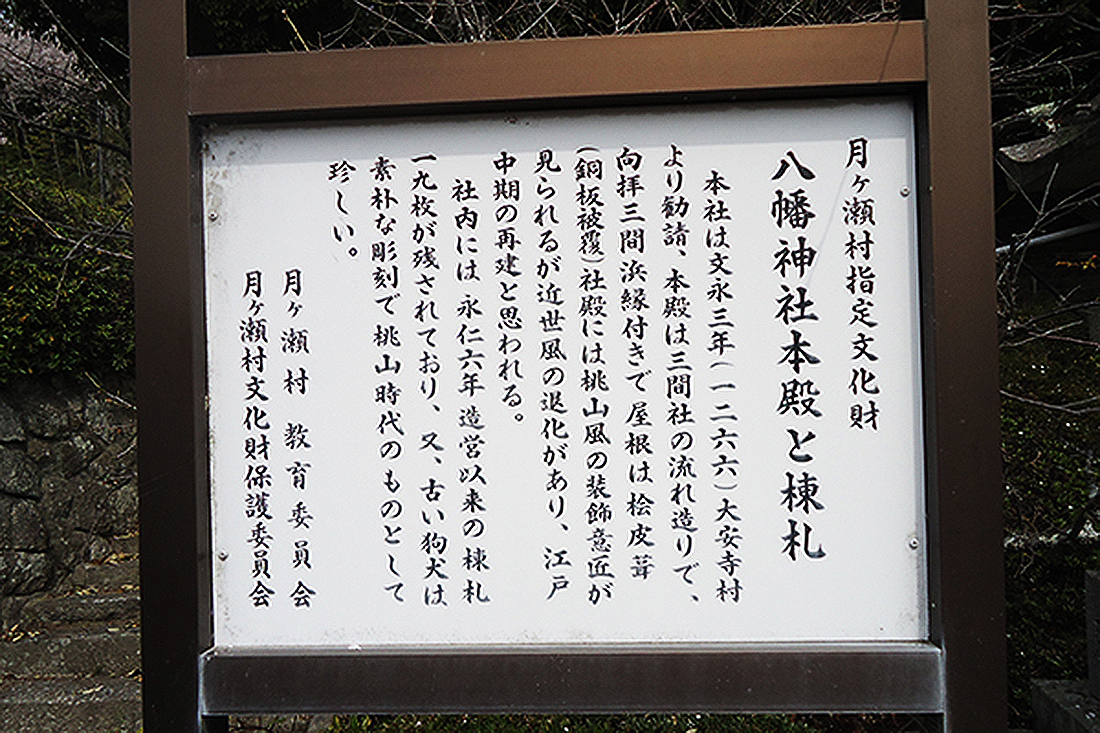 月ヶ瀬村指定文化財
八幡神社本殿と棟札
本社は文永三年(一二六六)大安寺村
より勧請、本殿は三間社の流れ造りで、
向拝三間浜縁付きで屋根は桧皮葺
(銅板被覆)社殿には桃山風の装飾意匠が
見られるが近世風の退化があり、江戸
中期の再建と思われる。
社内には永仁六年造営以来の棟札
一九枚が残されており、又、古い狗犬は
素朴な彫刻で桃山時代のものとして
珍しい。
月ヶ瀬村教育委員会
月ヶ瀬村文化財保護委員会